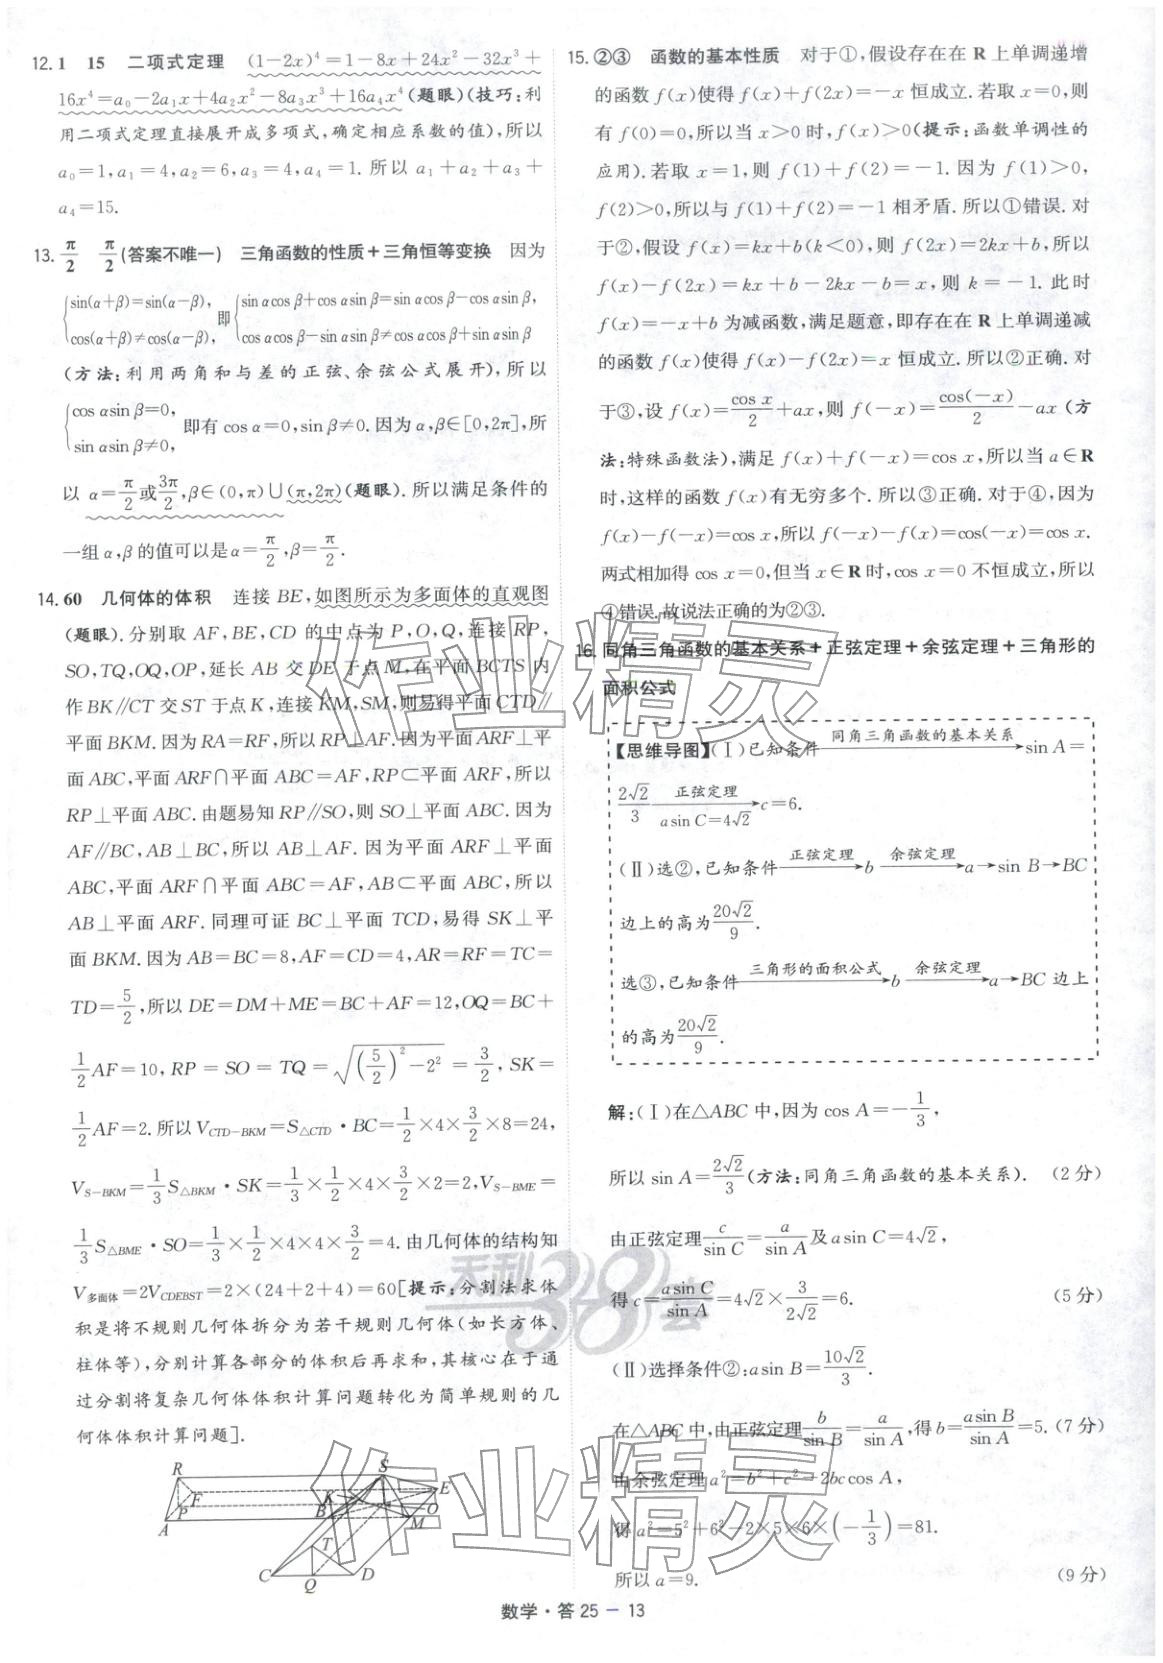 12. 1　15　二项式定理　(1−2x)⁴=1−8x+24x²−32x³+
16x⁴=a₀−2a₁x+4a₂x²−8a₃x³+16a₄x⁴(题眼)(技巧:利
用二项式定理直接展开成多项式,确定相应系数的值),所以
a₀=1,a₁=4,a₂=6,a₃=4,a₄=1.所以a₁+a₂+a₃+
a₄=15.
13. π/2　π/2(答案不唯一)　三角函数的性质+三角恒等变换　因为
{sin(α+β)=sin(α−β), cos(α+β)≠cos(α−β), 即{sin αcos β+cos αsin β=sin αcos β−cos αsin β, cos αcos β−sin αsin β≠cos αcos β+sin αsin β
(方法:利用两角和与差的正弦、余弦公式展开),所以
{cos αsin β=0, sin αsin β≠0, 即有cos α=0,sin β≠0.因为α,β∈[0,2π],所
以α=π/2或3π/2,β∈(0,π)∪(π,2π)(题眼).所以满足条件的
一组α,β的值可以是α=π/2,β=π/2.
14. 60　几何体的体积　连接BE,如图所示为多面体的直观图
(题眼).分别取AF,BE,CD的中点为P,O,Q,连接RP,
SO,TQ,OQ,OP,延长AB交DE于点M,在平面BCTS内
作BK∥CT交ST于点K,连接KM,SM,则易得平面CTD∥
平面BKM.因为RA=RF,所以RP⊥AF.因为平面ARF⊥平
面ABC,平面ARF∩平面ABC=AF,RP⊂平面ARF,所以
RP⊥平面ABC.由题易知RP∥SO,则SO⊥平面ABC.因为
AF∥BC,AB⊥BC,所以AB⊥AF.因为平面ARF⊥平面
ABC,平面ARF∩平面ABC=AF,AB⊂平面ABC,所以
AB⊥平面ARF.同理可证BC⊥平面TCD,易得SK⊥平
面BKM.因为AB=BC=8,AF=CD=4,AR=RF=TC=
TD=5/2,所以DE=DM+ME=BC+AF=12,OQ=BC+
1/2 AF=10,RP=SO=TQ=√((5/2)²−2²)=3/2,SK=
1/2 AF=2.所以V_{CTD−BKM}=S_{△CTD}·BC=1/2×4×3/2×8=24,
V_{S−BKM}=1/3 S_{△BKM}·SK=1/3×1/2×4×3/2×2=2,V_{S−BME}=
1/3 S_{△BME}·SO=1/3×1/2×4×4×3/2=4.由几何体的结构知
V_{多面体}=2V_{CDEBST}=2×(24+2+4)=60[提示:分割法求体
积是将不规则几何体拆分为若干规则几何体(如长方体、
柱体等),分别计算各部分的体积后再求和,其核心在于通
过分割将复杂几何体体积计算问题转化为简单规则的几
何体体积计算问题].
R S F K E P B O A M T C Q D
15. ②③　函数的基本性质　对于①,假设存在在R上单调递增
的函数f(x)使得f(x)+f(2x)=−x恒成立.若取x=0,则
有f(0)=0,所以当x>0时,f(x)>0(提示:函数单调性的
应用).若取x=1,则f(1)+f(2)=−1.因为f(1)>0,
f(2)>0,所以与f(1)+f(2)=−1相矛盾.所以①错误.对
于②,假设f(x)=kx+b(k<0),则f(2x)=2kx+b,所以
f(x)−f(2x)=kx+b−2kx−b=x,则k=−1.此时
f(x)=−x+b为减函数,满足题意,即存在在R上单调递减
的函数f(x)使得f(x)−f(2x)=x恒成立.所以②正确.对
于③,设f(x)=cos x/2+ax,则f(−x)=cos(−x)/2−ax(方
法:特殊函数法),满足f(x)+f(−x)=cos x,所以当a∈R
时,这样的函数f(x)有无穷多个.所以③正确.对于④,因为
f(x)−f(−x)=cos x,所以f(−x)−f(x)=cos(−x)=cos x.
两式相加得cos x=0,但当x∈R时,cos x=0不恒成立,所以
④错误.故说法正确的为②③.
16. 同角三角函数的基本关系+正弦定理+余弦定理+三角形的
面积公式
【思维导图】(Ⅰ)已知条件 —同角三角函数的基本关系→ sin A=
2√2/3 —正弦定理 asin C=4√2→ c=6.
(Ⅱ)选②,已知条件 —正弦定理→ b —余弦定理→ a→sin B→BC
边上的高为20√2/9.
选③,已知条件 —三角形的面积公式→ b —余弦定理→ a→BC边上
的高为20√2/9.
解:(Ⅰ)在△ABC中,因为cos A=−1/3,
所以sin A=2√2/3(方法:同角三角函数的基本关系).　(2分)
由正弦定理c/sin C=a/sin A及asin C=4√2,
得c=asin C/sin A=4√2×3/(2√2)=6.　(5分)
(Ⅱ)选择条件②:asin B=10√2/3.
在△ABC中,由正弦定理b/sin B=a/sin A,得b=asin B/sin A=5.(7分)
由余弦定理a²=b²+c²−2bccos A,
得a²=5²+6²−2×5×6×(−1/3)=81.
所以a=9.　(9分)
数学·答25－13
作业精灵
天利38套
作业精灵